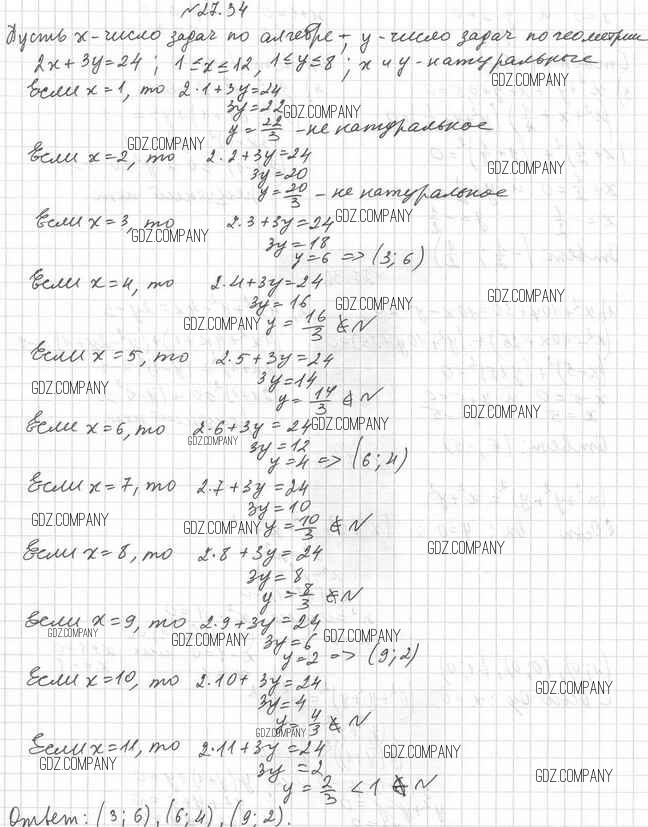 №27.34
Пусть x-число задач по алгебре, y-число задач по геометрии
2x+3y=24; 1≤x≤12, 1≤y≤8; x и y-натуральные
GDZ.COMPANY
Если x=1, то 2·1+3y=24
3y=22 GDZ.COMPANY
y=22/3 - не натуральное
GDZ.COMPANY
Если x=2, то 2·2+3y=24
GDZ.COMPANY
3y=20
y=20/3 - не натуральное
Если x=3, то 2·3+3y=24 GDZ.COMPANY
GDZ.COMPANY
3y=18
y=6 => (3; 6)
Если x=4, то 2·4+3y=24
GDZ.COMPANY
3y=16 GDZ.COMPANY
GDZ.COMPANY y=16/3 ∉ N
Если x=5, то 2·5+3y=24
3y=14
GDZ.COMPANY
y=14/3 ∉ N
GDZ.COMPANY
Если x=6, то 2·6+3y=24 GDZ.COMPANY
GDZ.COMPANY
3y=12
y=4 => (6; 4)
Если x=7, то 2·7+3y=24
3y=10
GDZ.COMPANY GDZ.COMPANY y=10/3 ∉ N
GDZ.COMPANY
Если x=8, то 2·8+3y=24
3y=8
y=8/3 ∉ N
Если x=9, то 2·9+3y=24
GDZ.COMPANY GDZ.COMPANY 3y=6 GDZ.COMPANY
y=2 => (9; 2)
Если x=10, то 2·10+3y=24
GDZ.COMPANY
3y=4
y=4/3 ∉ N
GDZ.COMPANY
Если x=11, то 2·11+3y=24
GDZ.COMPANY
GDZ.COMPANY
3y=2
GDZ.COMPANY
y=2/3 <1 ∉ N
Ответ: (3; 6), (6; 4), (9; 2).